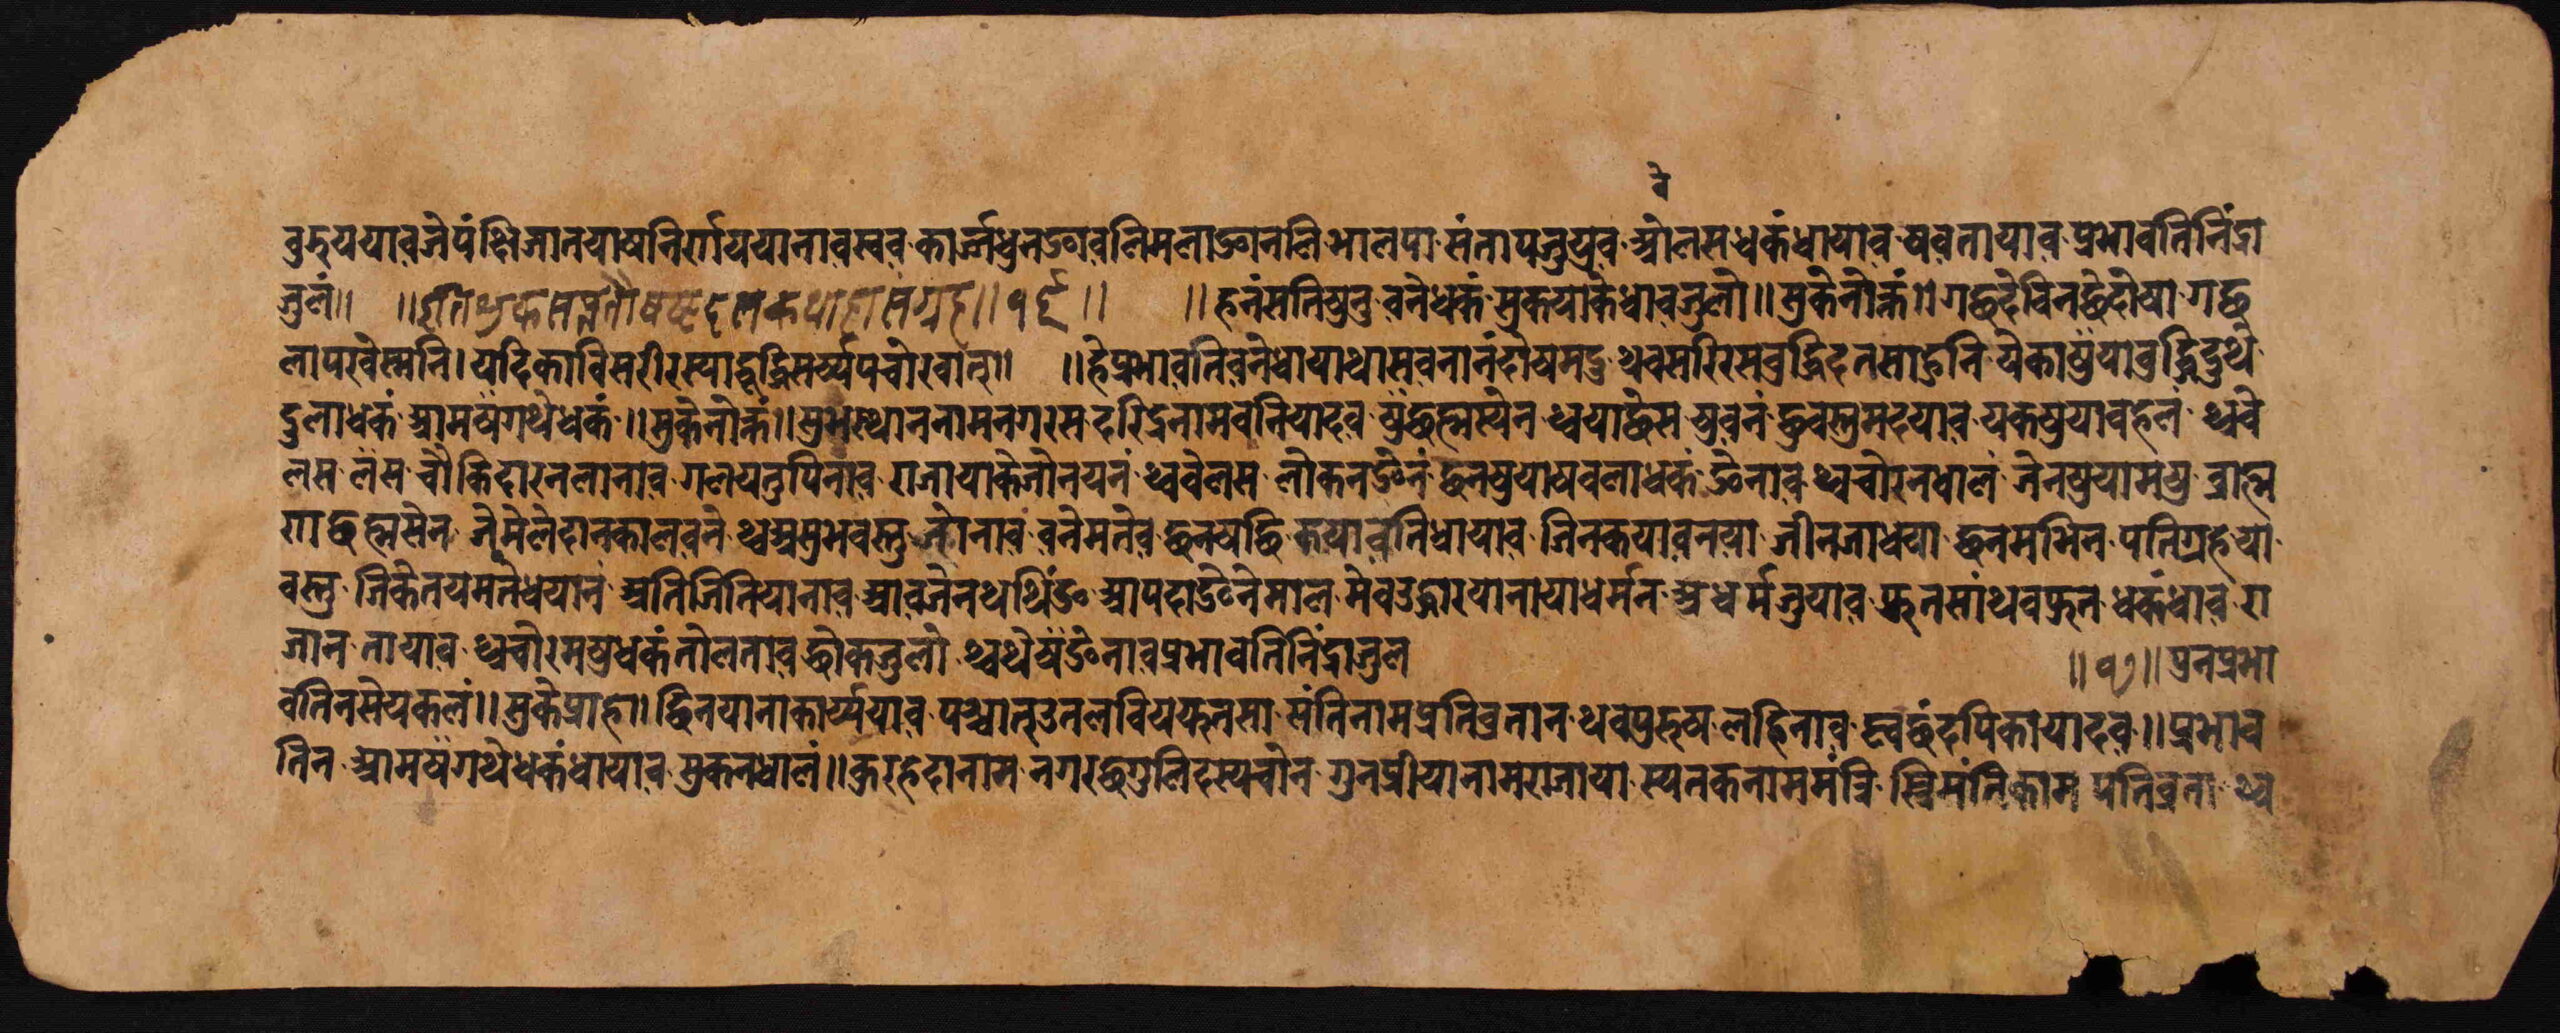 वे
वुद्धयायावजेपंक्षिजातयाषनिर्णययानावस्वव कार्ज्जधुनङावलिमलाङानलि भालपा संतापजुयुव ओलसधकंधायाव षवतायाव प्रभावतिनिंद्रा
जुलं॥ ॥इति शुकसप्ततौषष्टदसकथासंग्रह॥१६॥ ॥हनंसतिषुनु वनेधकं सुकयाकेधावजुलो॥सुकेनोक्तं॥गछदेविनछेदोयो गछ
लापरवेस्मनि।यदिकावि सरीरस्याद्बुद्धिसर्य्यपचोरवात्॥ ॥हेप्रभावतिवनेधायाथासवनानंदोषमदु थवसरिरसवुद्धिदतसाहुनि येकाषुंयावुद्धिदुथें
दुलाधकं आमषंगथेधकं॥सुकेनोक्तं॥सुभस्थाननामनगरस दरिद्रनामवनियादव षुंछह्मस्येन थ्वयाछेस षुवनं छुवस्तुमदयाव यकषुयावहलं थ्ववे
लस लंस चौकिदारनलानाव गलयतुपिनाव राजायाकेजोनयनं थ्ववेलस लोकनङेनं छनषुयाषवलाधकं ङेनाव थ्वचोरनधालं जेनषुयामषु ब्राह्म
णछह्मसेन जेमेलेदानकालवने थ्वअसुभवस्तु जोनाव वनेमतेव छनयछि कयावतिधायाव जिनकयावनया जोनजाधया छनमभिन पतिग्रहया
वस्तु जिकेतयमतेधयानं अतिजितियानाव आवजेनथथिंङ आपदाङेनेमाल मेवउद्धारयानायाधर्मन अधर्मजुयाव फुनसांथवफुन धकंधाव रा
जान तायाव थ्वचोरमषुधकंतोलताव छोकजुलो थ्वथेषंङेनावप्रभावतिनिंद्राजुल ॥१७॥पुनप्रभा
वतिनसेयकलं॥सुकेप्राह॥द्विनयानाकार्य्ययाव पश्चात्उतलवियफतसा संतिनामप्रतिव्रतान थवपुरुष लह्निनाव स्वछंदपिकायादव॥प्रभाव
तिन आमषंगथेधकंधायाव सुकनधालं॥करहेदानाम नगरछगुलिदस्यचोन गुनप्रीयानामराजाया स्यनकनाममंत्रि स्त्रिसंतिकानाम पतिव्रता थ्व